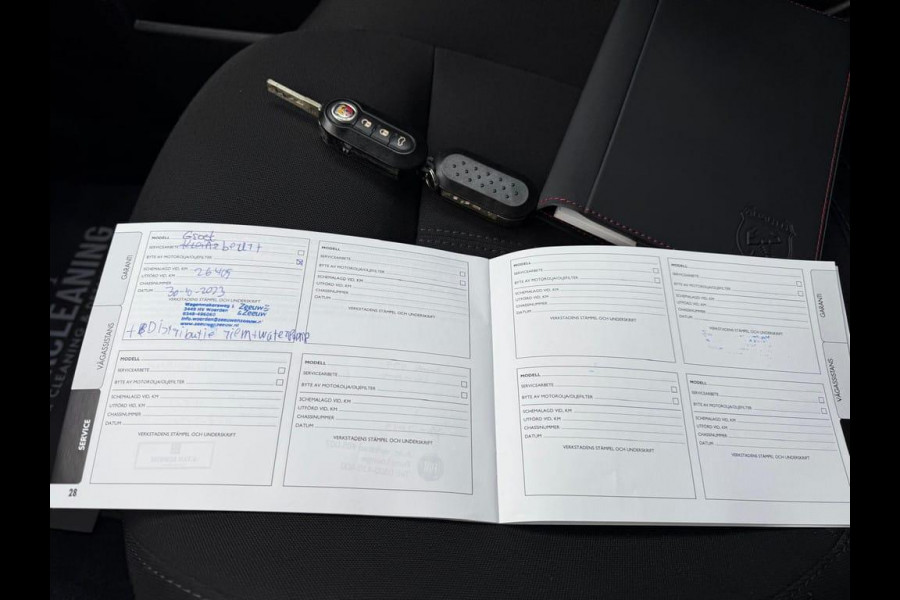 CLEANING
GARANTI
VÄGASSISTANS
SERVICE
28
MODELL Groot
SERVICEARBETE
BYTE AV MOTOROLJA/OLJEFILTER
SCHEMALAGD VID, KM
UTFÖRD VID, KM
CHASSINUMMER
DATUM
VERKSTADENS STÄMPEL OCH UNDERSKRIFT
Zeeuw &
Zeeuw
Distributie riem + waterpomp
MODELL
SERVICEARBETE
BYTE AV MOTOROLJA/OLJEFILTER
SCHEMALAGD VID, KM
UTFÖRD VID, KM
CHASSINUMMER
DATUM
VERKSTADENS STÄMPEL OCH UNDERSKRIFT
MODELL
SERVICEARBETE
BYTE AV MOTOROLJA/OLJEFILTER
SCHEMALAGD VID, KM
UTFÖRD VID, KM
CHASSINUMMER
DATUM
VERKSTADENS STÄMPEL OCH UNDERSKRIFT
MODELL
SERVICEARBETE
BYTE AV MOTOROLJA/OLJEFILTER
SCHEMALAGD VID, KM
UTFÖRD VID, KM
CHASSINUMMER
DATUM
VERKSTADENS STÄMPEL OCH UNDERSKRIFT
MODELL
SERVICEARBETE
BYTE AV MOTOROLJA/OLJEFILTER
SCHEMALAGD VID, KM
UTFÖRD VID, KM
CHASSINUMMER
DATUM
VERKSTADENS STÄMPEL OCH UNDERSKRIFT
MODELL
SERVICEARBETE
BYTE AV MOTOROLJA/OLJEFILTER
SCHEMALAGD VID, KM
UTFÖRD VID, KM
CHASSINUMMER
DATUM
VERKSTADENS STÄMPEL OCH UNDERSKRIFT
MODELL
SERVICEARBETE
BYTE AV MOTOROLJA/OLJEFILTER
SCHEMALAGD VID, KM
UTFÖRD VID, KM
CHASSINUMMER
DATUM
VERKSTADENS STÄMPEL OCH UNDERSKRIFT
MODELL
SERVICEARBETE
BYTE AV MOTOROLJA/OLJEFILTER
SCHEMALAGD VID, KM
UTFÖRD VID, KM
CHASSINUMMER
DATUM
VERKSTADENS STÄMPEL OCH UNDERSKRIFT
GARANTI
VÄGASSISTANS